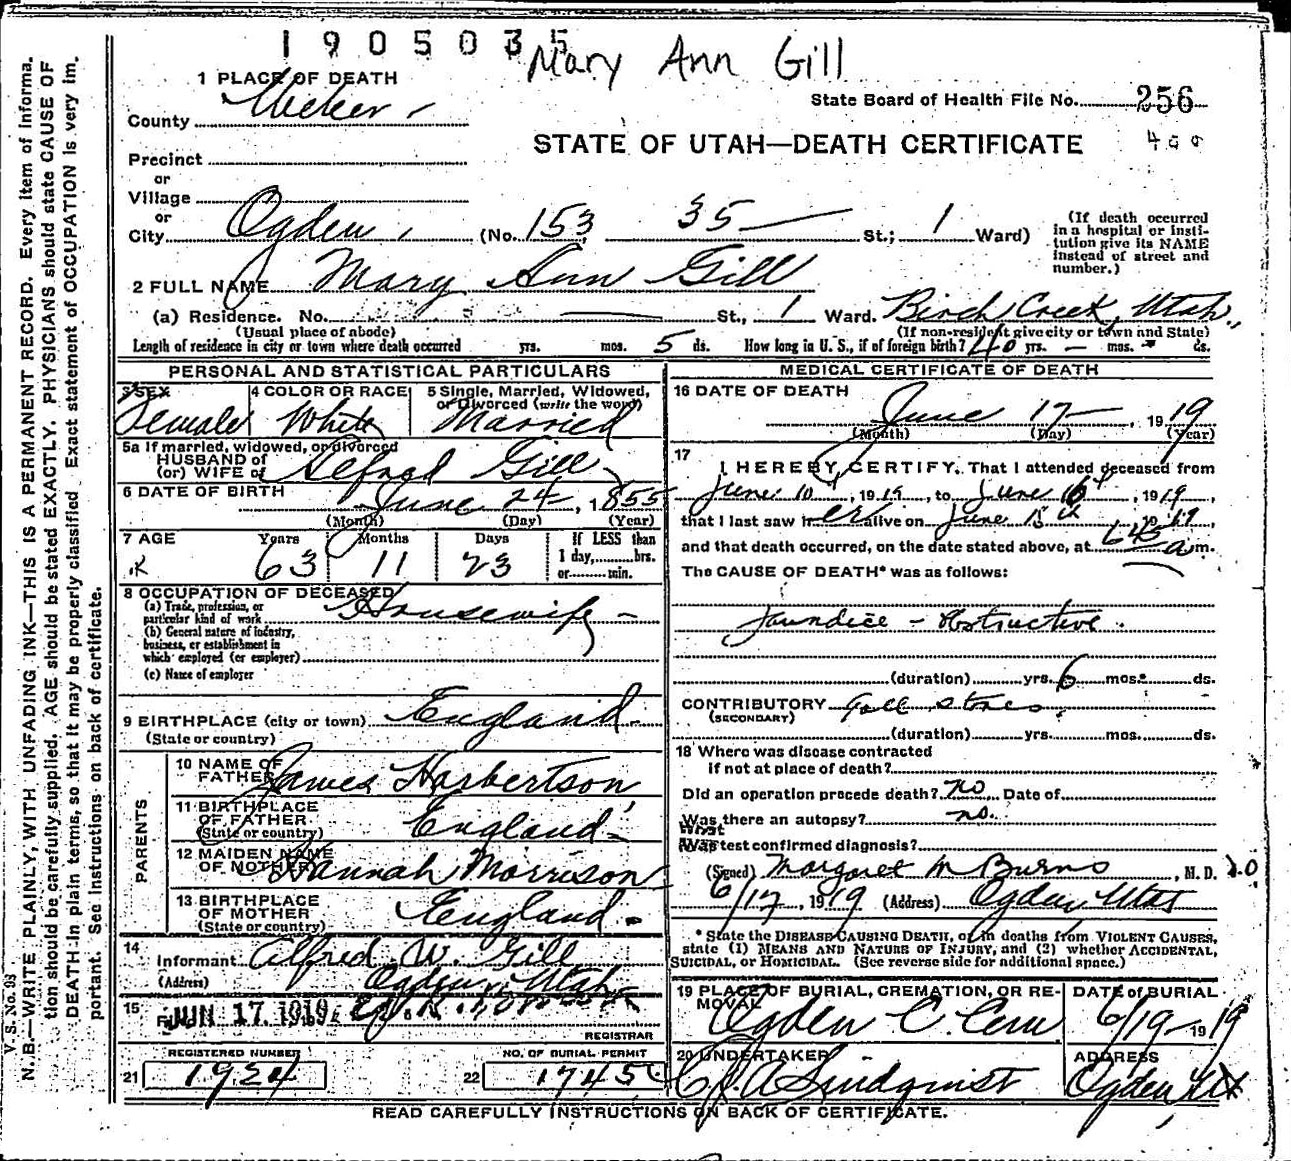 1905035
Mary Ann Gill
1 PLACE OF DEATH
County Weber
State Board of Health File No. 256
STATE OF UTAH—DEATH CERTIFICATE
400
Precinct
or
Village
or
City Ogden, (No. 153, 35 St.; 1 Ward)
(If death occurred in a hospital or institution give its NAME instead of street and number.)
2 FULL NAME Mary Ann Gill
(a) Residence. No. — St., 1 Ward. Birch Creek, Utah.
(Usual place of abode) (If non-resident give city or town and State)
Length of residence in city or town where death occurred yrs. mos. 5 ds. How long in U. S., if of foreign birth? 40 yrs. – mos. - ds.
PERSONAL AND STATISTICAL PARTICULARS
3 SEX Female
4 COLOR OR RACE White
5 Single, Married, Widowed, or Divorced (write the word) Married
5a If married, widowed, or divorced
HUSBAND of
(or) WIFE of Alfred Gill
6 DATE OF BIRTH June 24, 1855
(Month) (Day) (Year)
7 AGE Years Months Days If LESS than
63 11 23 1 day,......hrs.
or.........min.
8 OCCUPATION OF DECEASED
(a) Trade, profession, or particular kind of work Housewife –
(b) General nature of industry, business, or establishment in which employed (or employer)
(c) Name of employer
9 BIRTHPLACE (city or town) England
(State or country)
PARENTS
10 NAME OF FATHER James Harbertson
11 BIRTHPLACE OF FATHER England
(State or country)
12 MAIDEN NAME OF MOTHER Hannah Morrison
13 BIRTHPLACE OF MOTHER England
(State or country)
14 Informant Alfred W. Gill
(Address) Ogden, Utah
15 JUN 17 1919
REGISTRAR
REGISTERED NUMBER NO. OF BURIAL PERMIT
21 1924 22 1745
MEDICAL CERTIFICATE OF DEATH
16 DATE OF DEATH June 17, 1919
(Month) (Day) (Year)
17 I HEREBY CERTIFY, That I attended deceased from
June 10th, 1919, to June 16th, 1919,
that I last saw her alive on June 15th 1919,
and that death occurred, on the date stated above, at 6 45 a m.
The CAUSE OF DEATH* was as follows:
Jaundice – Obstructive.
(duration) yrs. 6 mos. ds.
CONTRIBUTORY Gall stones.
(SECONDARY)
(duration) yrs. mos. ds.
18 Where was disease contracted
if not at place of death?
Did an operation precede death? no Date of
Was there an autopsy? no.
What test confirmed diagnosis?
(Signed) Margaret M Burns, M. D. D.O
6/17, 1919 (Address) Ogden, Utah
* State the DISEASE CAUSING DEATH, or in deaths from VIOLENT CAUSES, state (1) MEANS AND NATURE OF INJURY, and (2) whether ACCIDENTAL, SUICIDAL, or HOMICIDAL. (See reverse side for additional space.)
19 PLACE OF BURIAL, CREMATION, OR REMOVAL Ogden C. Cem
DATE of BURIAL 6/19 – 1919
20 UNDERTAKER C. J. A Lindquist
ADDRESS Ogden Ut
READ CAREFULLY INSTRUCTIONS ON BACK OF CERTIFICATE.
V. S. No. 98
N.B.—WRITE PLAINLY, WITH UNFADING INK—THIS IS A PERMANENT RECORD. Every item of information should be carefully supplied. AGE should be stated EXACTLY. PHYSICIANS should state CAUSE OF DEATH in plain terms, so that it may be properly classified. Exact statement of OCCUPATION is very important. See instructions on back of certificate.